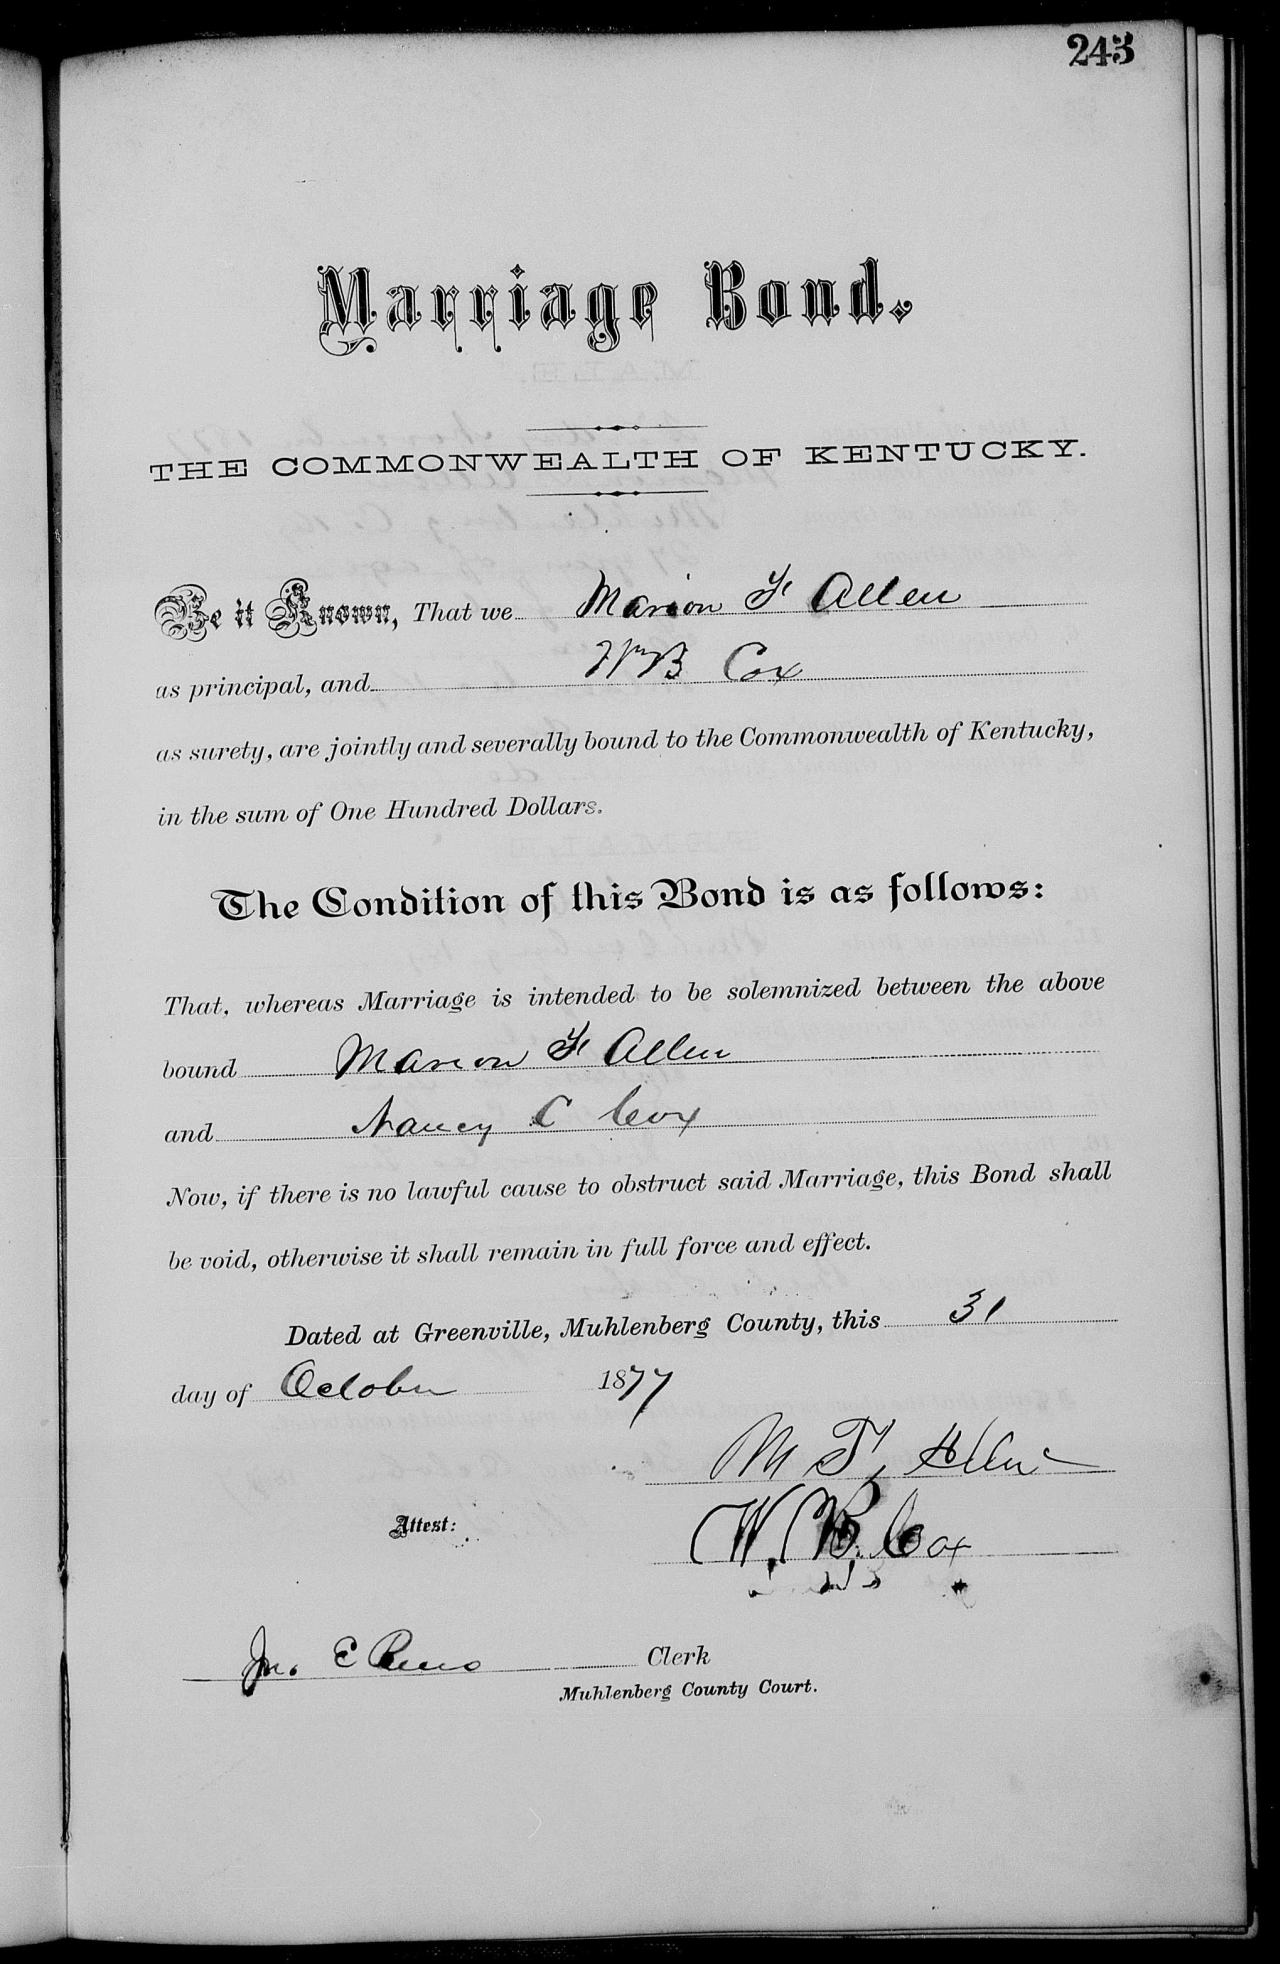 243
Marriage Bond.
THE COMMONWEALTH OF KENTUCKY.
Be it Known, That we Marion F Allen
as principal, and Wm B Cox
as surety, are jointly and severally bound to the Commonwealth of Kentucky,
in the sum of One Hundred Dollars.
The Condition of this Bond is as follows:
That, whereas Marriage is intended to be solemnized between the above
bound Marion F Allen
and Nancy C Cox
Now, if there is no lawful cause to obstruct said Marriage, this Bond shall
be void, otherwise it shall remain in full force and effect.
Dated at Greenville, Muhlenberg County, this 31
day of October 1877
M F Allen
Attest:
W. B. Cox
Jno. E Reno Clerk
Muhlenberg County Court.